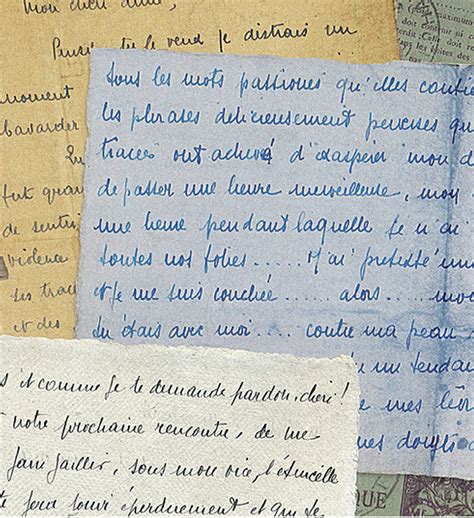 mon cher aimé,
Pense-tu le vend je distrais un
moment
bavarder
fut gran
de sentir
violence
ses trac
et des
doit con
indicatif
Tous les mots passionés qu'elles contie
les phrases délicieusement perverses que
tracées ont achevé d'exaspérer mon d
de passer une heure merveilleuse, mon
une heure pendant laquelle je n'ai
toutes nos folies ..... M'ai prétexté un
et je me suis couchée ...... alors .....
tu étais avec moi .... contre ma peau
un tendan
mes lèv
mes doigts
s et comme je te demande pardon, chéri!
t notre prochaine rencontre, de me
faire jaillir, sous mon vice, l'étincelle
te fera jouir éperdument et qui se
QUE